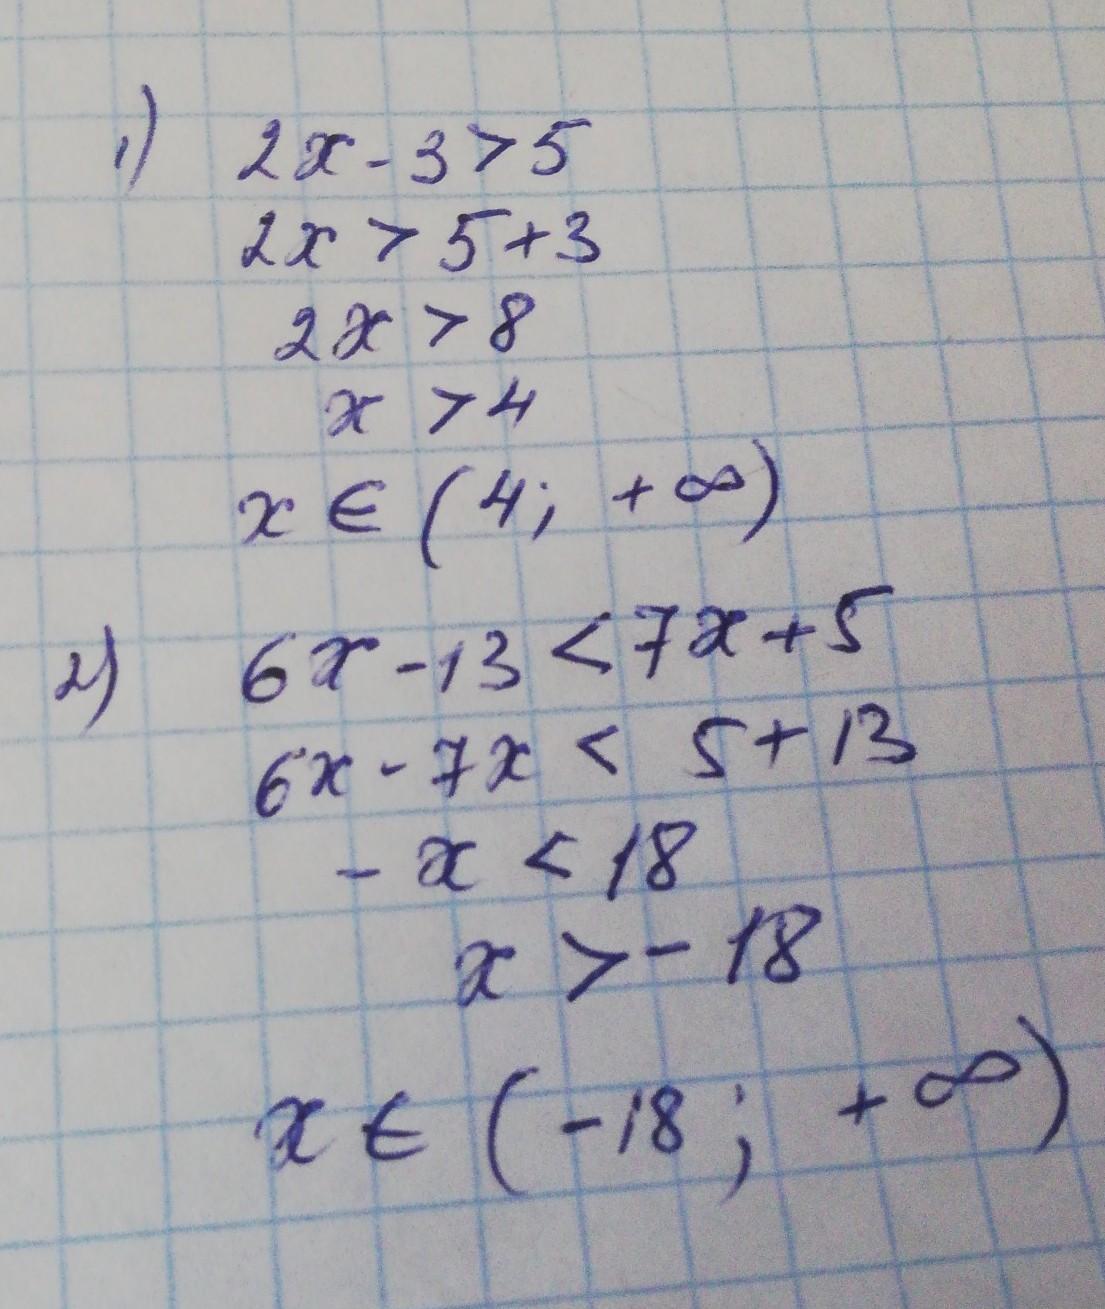 1) 2x - 3 > 5
2x > 5 + 3
2x > 8
x > 4
x ∈ (4; +∞)
2) 6x - 13 < 7x + 5
6x - 7x < 5 + 13
- x < 18
x > - 18
x ∈ (-18; +∞)